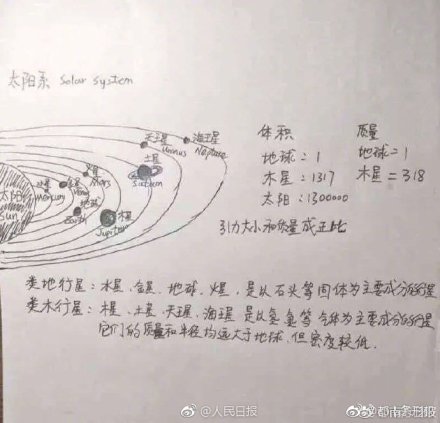 太阳系 Solar System
天王星 Uranus
海王星 Neptune
土星
水星 Mercury
金星
火星 Mars
地球 Earth
木星 Jupiter
太阳 Sun
体积 质量
地球：1 地球=1
木星：1317 木星=318
太阳：1300000
引力大小和质量成正比
类地行星：水星、金星、地球、火星，是以石头等固体为主要成分的行星
类木行星：木星、土星、天王星、海王星是以氢氦等气体为主要成分的行星
它们的质量和半径均远大于地球，但密度较低.
@人民日报